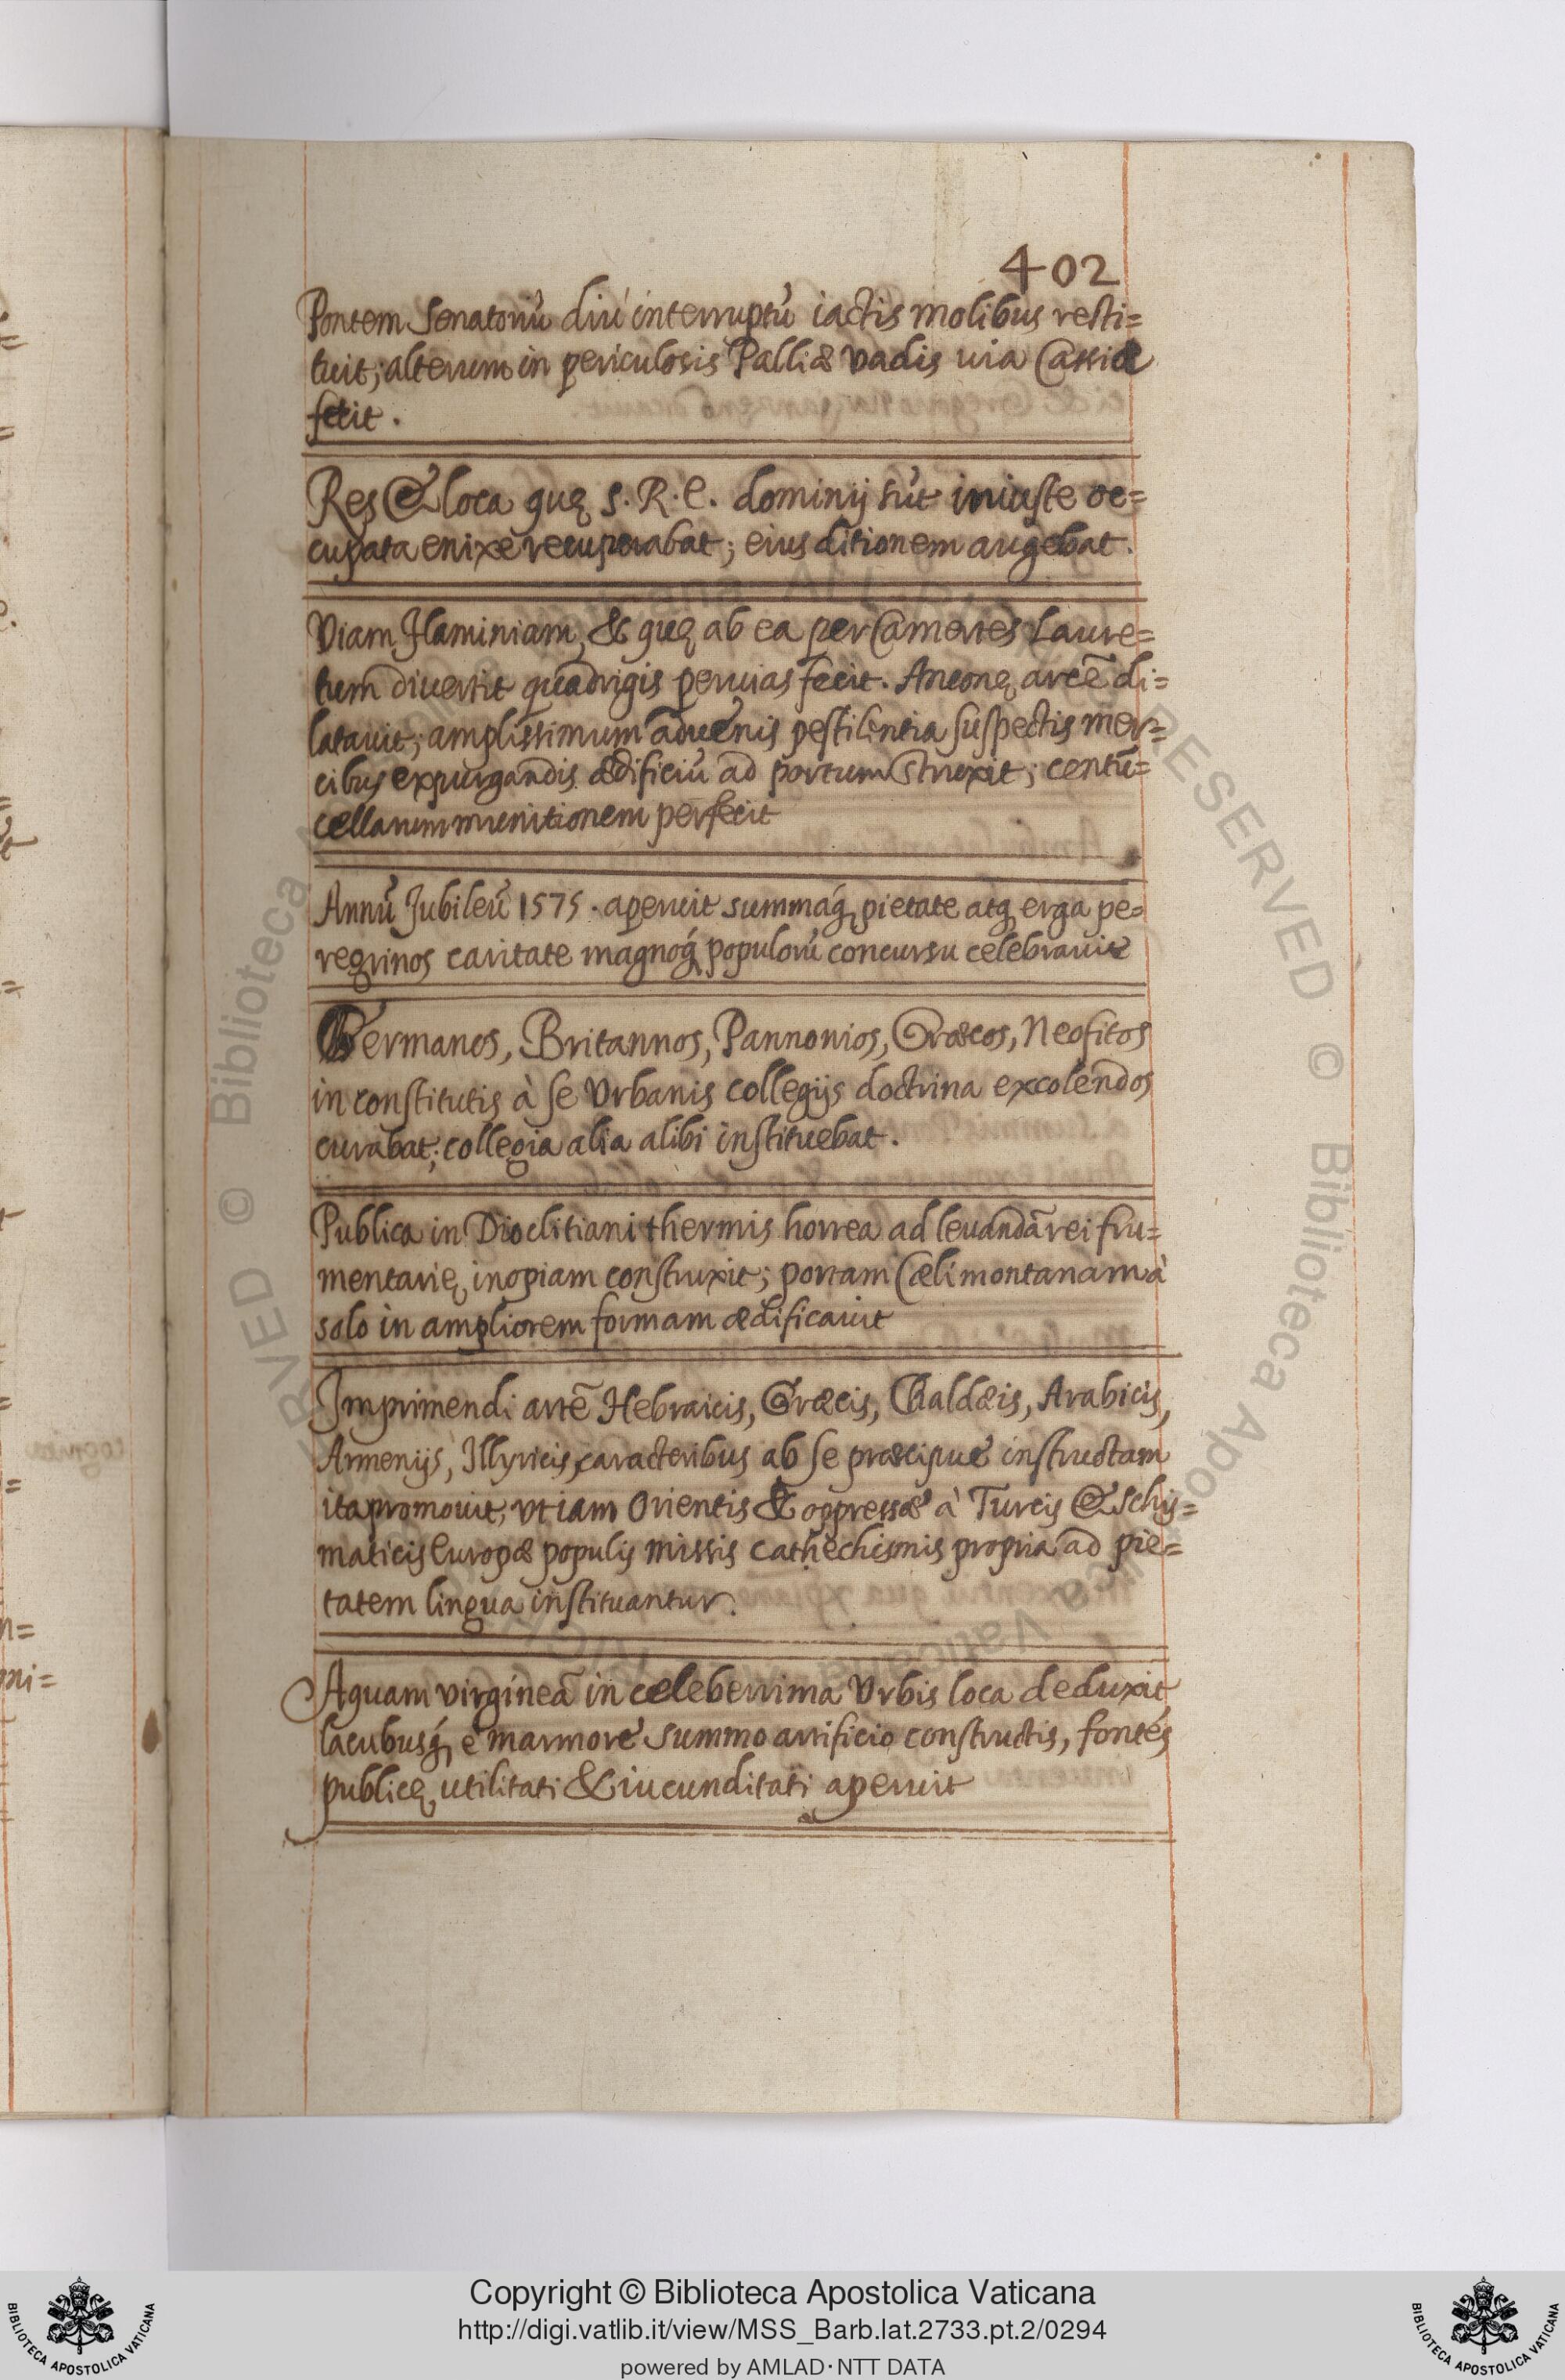 402
Pontem Senatoriū diù interruptū iactis molibus resti=
tuit; alterum in periculosis Palliæ vadis uia Cassiæ
fecit.
Res & loca quę S. R. E. dominij sūt iniuste oc=
cupata enixè recuperabat; eius ditionem augebat.
Viam Flaminiam, & quę ab ea per Camertes Laure=
tum diuertit quadrigis peruias fecit. Anconę arcē di=
latauit; amplissimum aduenis pestilentia suspectis mer=
cibus expurgandis ædificiū ad portum struxit; centū=
cellarum munitionem perfecit
Annū Jubileū 1575. aperuit summaq́ꝫ pietate atqꝫ erga pe=
regrinos caritate magnoq́ꝫ populorū concursu celebrauit
Germanos, Britannos, Pannonios, Græcos, Neofitos
in constitutis à se Vrbanis collegijs doctrina excolendos
curabat; collegia alia alibi instituebat.
Publica in Dioclitiani thermis horrea ad leuandā rei fru=
mentarię inopiam construxit; portam Cælimontanam à
solo in ampliorem formam ædificauit
Imprimendi artē Hebraicis, Græcis, Chaldæis, Arabicis,
Armenijs, Illyricis, caracteribus ab se præcipuè instructam
ita promouit, vt iam Orientis & oppressæ à Turcis & Schis=
maticis Europæ populis missis cathechismis propria ad pie=
tatem lingua instituantur.
Aquam virgineā in celeberrima Vrbis loca deduxit
lacubusq́ꝫ è marmore summo artificio constructis, fontes
publicę utilitati & iucunditati aperuit
Copyright © Biblioteca Apostolica Vaticana
http://digi.vatlib.it/view/MSS_Barb.lat.2733.pt.2/0294
powered by AMLAD·NTT DATA
BIBLIOTECA APOSTOLICA VATICANA
BIBLIOTECA APOSTOLICA VATICANA